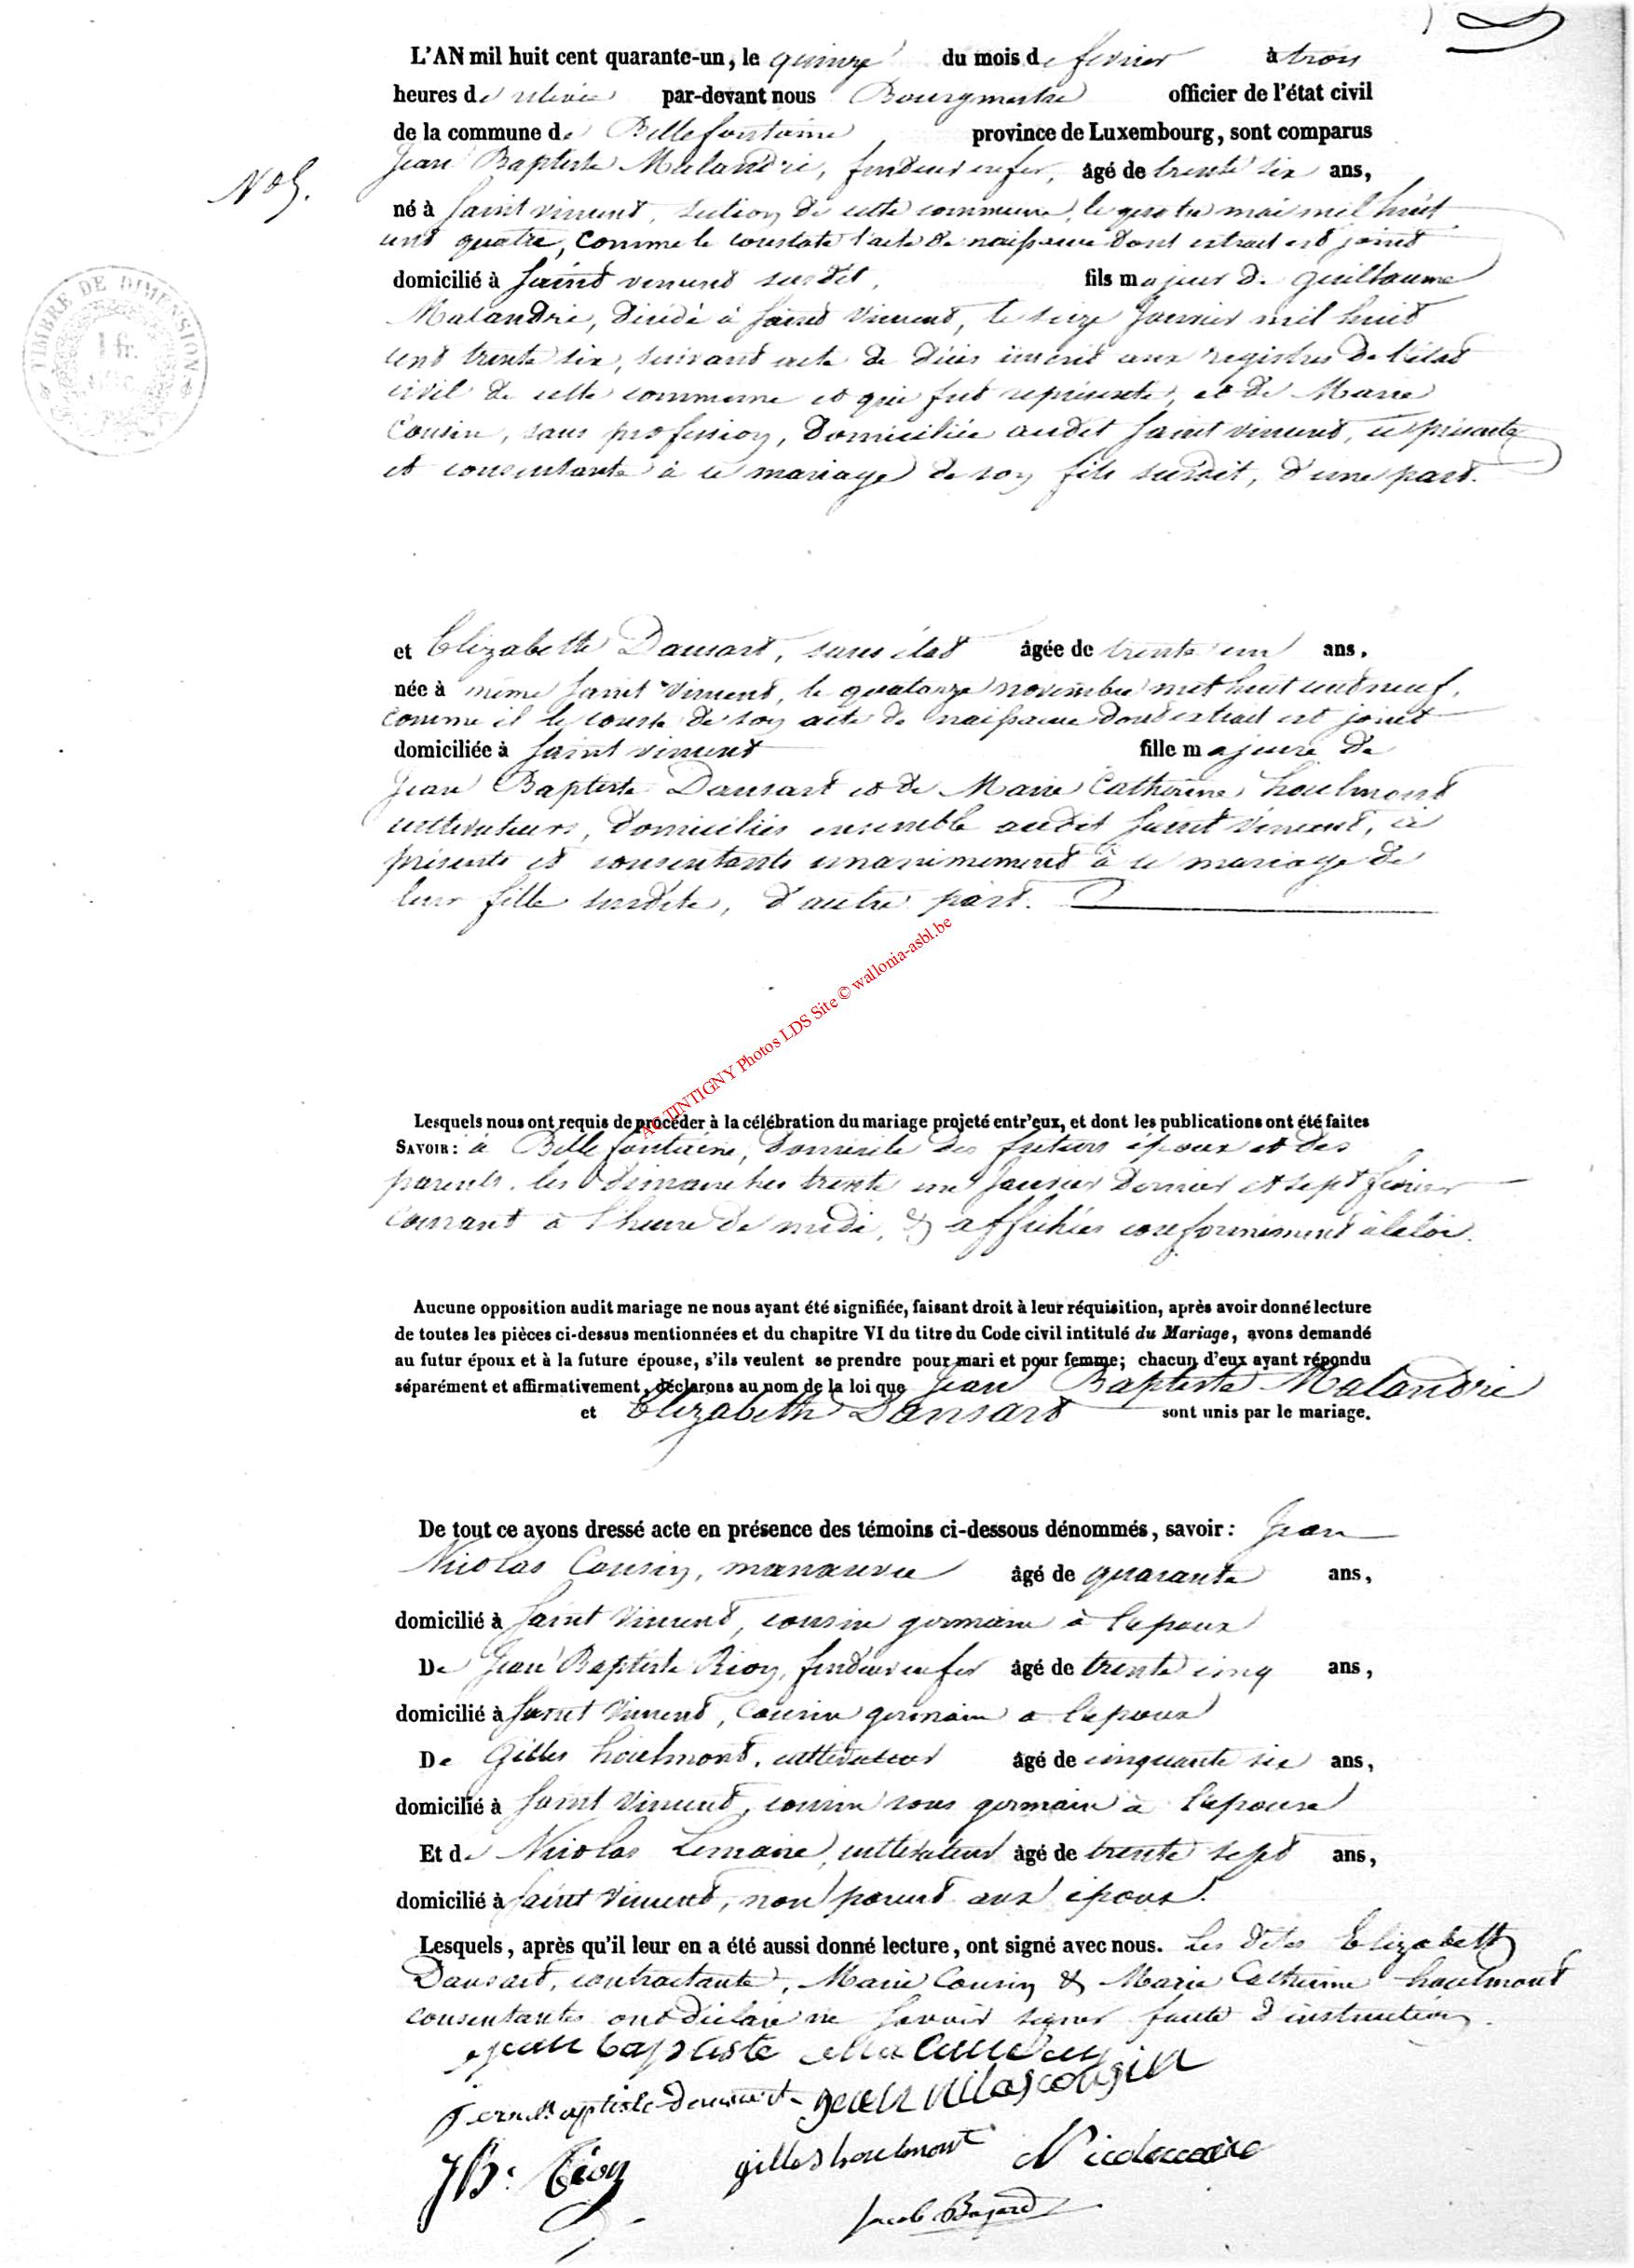 L'AN mil huit cent quarante-un, le quinze du mois de fevrier à trois
heures de relevée par-devant nous Bourgmestre officier de l'état civil
de la commune de Bellefontaine, province de Luxembourg, sont comparus
Jean Baptiste Malandri, fondeur en fer, âgé de trente six ans,
N° 5.
né à Saint vincent, section de cette commune, le mai mil huit
cent quatre, comme le constate l'acte de naissance dont extrait est joint
domicilié à Saint vincent susdit, fils majeur de guillaume
Malandri, décédé à Saint Vincent, le seize Janvier mil huit
cent trente six, suivant acte de décès inscrit aux registres de l'état
civil de cette commune et qui fut représenté, et de Marie
Cousin, sans profession, domiciliée audit Saint vincent, ci présente
et consentante à ce mariage de son fils susdit, d'une part.
et Elizabethe Dansart, sans état âgée de trente un ans,
née à même Saint Vincent, le quatorze novembre mil huit cent neuf,
comme il le conste de son acte de naissance dont extrait est joint
domiciliée à Saint vincent fille majeure de
Jean Baptiste Dansart et de Marie Catherine houlmont
cultivateurs, domiciliés ensemble audit Saint Vincent, ci
présents et consentants unanimement à ce mariage de
leur fille susdite, d'autre part.
AC TINTIGNY Photos LDS Site © wallonia-asbl.be
Lesquels nous ont requis de procéder à la célébration du mariage projeté entr'eux, et dont les publications ont été faites
SAVOIR: à Bellefontaine, domicile des futurs époux et des
parents, les dimanches trente un Janvier dernier et sept fevrier
courant à l'heure de midi, & affichées conformément à la loi.
Aucune opposition audit mariage ne nous ayant été signifiée, faisant droit à leur réquisition, après avoir donné lecture
de toutes les pièces ci-dessus mentionnées et du chapitre VI du titre du Code civil intitulé du Mariage, avons demandé
au futur époux et à la future épouse, s'ils veulent se prendre pour mari et pour femme; chacun d'eux ayant répondu
séparément et affirmativement, déclarons au nom de la loi que Jean Baptiste Malandri
et Elizabethe Dansart sont unis par le mariage.
De tout ce avons dressé acte en présence des témoins ci-dessous dénommés, savoir: Jean
Nicolas Cousin, manœuvre âgé de quarante ans,
domicilié à Saint Vincent, cousin germain à l'epoux
De Jean Baptiste Rion, fondeur en fer âgé de trente cinq ans,
domicilié à Saint Vincent, Cousin germain a l'epoux
De Gilles houlmont, cultivateur âgé de cinquante six ans,
domicilié à Saint Vincent, cousin sous germain a l'epouse
Et de Nicolas Lemaire, cultivateur âgé de trente sept ans,
domicilié à Saint Vincent, non parent aux époux.
Lesquels, après qu'il leur en a été aussi donné lecture, ont signé avec nous. Les dites Elizabeth
Dansart, contractante, Marie Cousin & Marie Catherine houlmont
consentantes ont déclaré ne savoir signer faute d'instruction.
jean baptiste
Jean Baptiste Dansart jean nicolas cousin
JB. Rion gilles houlmont
Jacob
TIMBRE DE DIMENSION
1 fr.